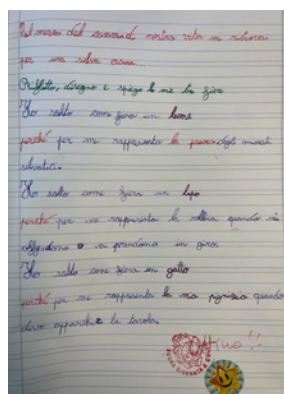 Nel mezzo del cammin di nostra vita mi ritrovai
per una selva oscura...
Rifletto, disegno e spiego le mie tre fiere
Ho scelto come fiera un leone
perché per me rappresenta la paura degli animali
selvatici.
Ho scelto come fiera un lupo
perché per me rappresenta la rabbia quando mi
offendono o mi prendono in giro.
Ho scelto come fiera un gatto
perché per me rappresenta la mia pigrizia quando
devo apparecchiare la tavola.
Ottimo!!